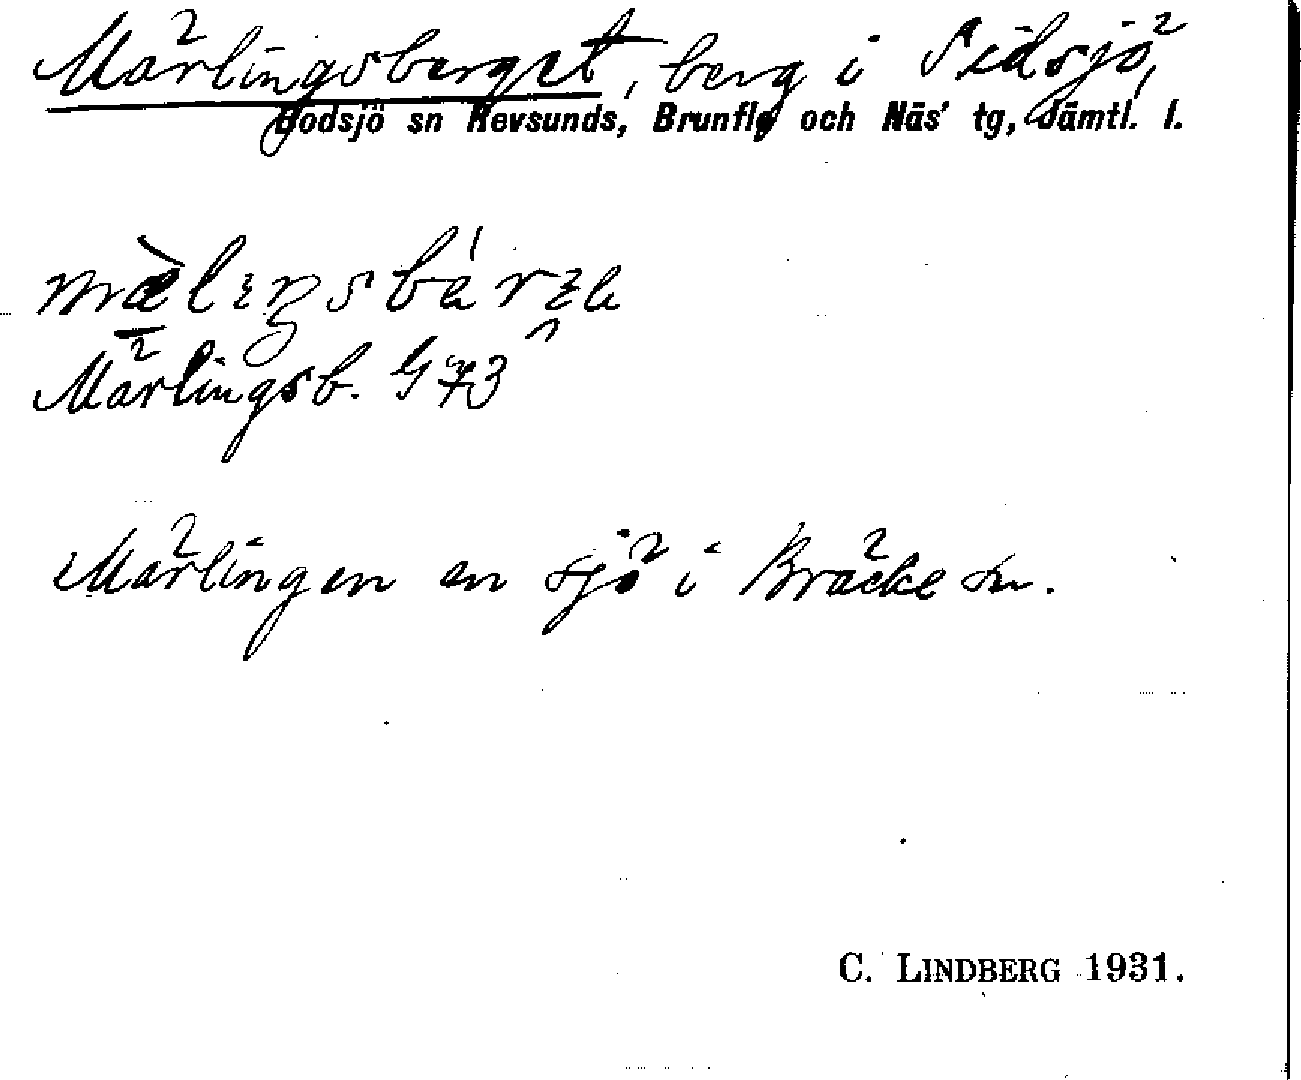 Märlingsberget, berg i Sidsjö,
Bodsjö sn Revsunds, Brunflo och Näs' tg, Jämtl. l.
Märlingsb. G 73
Märlingen en sjö i Bräcke sn.
C. LINDBERG 1931.